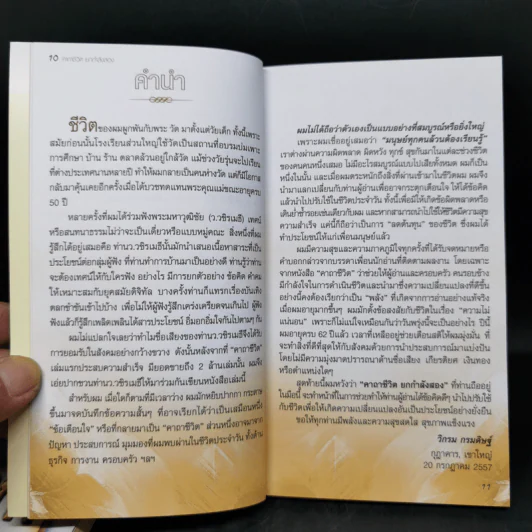 10 คาถาชีวิต ยกกำลังสอง
คำนำ
ชีวิตของผมผูกพันกับพระ วัด มาตั้งแต่วัยเด็ก ทั้งนี้เพราะ
สมัยก่อนนั้นโรงเรียนส่วนใหญ่ใช้วัดเป็นสถานที่อบรมบ่มเพาะ
การศึกษา บ้าน ร้าน ตลาดล้วนอยู่ใกล้วัด แม้ช่วงวัยรุ่นจะไปเรียน
ที่ต่างประเทศนานหลายปี ทำให้ผมกลายเป็นคนห่างวัด แต่ก็มีโอกาส
กลับมาคุ้นเคยอีกครั้งเมื่อได้บวชทดแทนพระคุณแม่ขณะอายุครบ
50 ปี
หลายครั้งที่ผมได้ร่วมฟังพระมหาวุฒิชัย (ว.วชิรเมธี) เทศน์
หรือสนทนาธรรมไม่ว่าจะเป็นเดี่ยวหรือแบบหมู่คณะ สิ่งหนึ่งที่ผม
รู้สึกได้อยู่เสมอคือ ท่านว.วชิรเมธีนั้นมักนำเสนอเนื้อหาสาระที่เป็น
ประโยชน์ต่อกลุ่มผู้ฟัง ที่ท่านทำการบ้านมาเป็นอย่างดี ท่านรู้ว่าท่าน
จะต้องเทศน์ให้ใครฟัง อย่างไร มีการยกตัวอย่าง ข้อคิด คำคม
ให้เหมาะสมกับยุคสมัยดิจิทัล บางครั้งท่านก็แทรกเรื่องบันเทิง
ตลกขำขันเข้าไปบ้าง เพื่อไม่ให้ผู้ฟังรู้สึกเคร่งเครียดจนเกินไป ผู้ฟัง
ฟังแล้วก็รู้สึกเพลิดเพลินได้สารประโยชน์ อิ่มอกอิ่มใจกันไปตามๆ กัน
ผมไม่แปลกใจเลยว่าทำไมชื่อเสียงของท่านว.วชิรเมธีจึงได้รับ
การยอมรับในสังคมอย่างกว้างขวาง ดังนั้นหลังจากที่ "คาถาชีวิต"
เล่มแรกประสบความสำเร็จ มียอดขายถึง 2 ล้านเล่มนั้น ผมจึง
เอ่ยปากชวนท่านว.วชิรเมธีให้มาร่วมกันเขียนหนังสือเล่มนี้
สำหรับผม เมื่อใดก็ตามที่มีเวลาว่าง ผมมักหยิบปากกา กระดาษ
ขึ้นมาจดบันทึกข้อความสั้นๆ ที่อาจเรียกได้ว่าเป็นเสมือนหนึ่ง
"ข้อเตือนใจ" หรือที่กลายมาเป็น "คาถาชีวิต" ส่วนหนึ่งอาจมาจาก
ปัญหา ประสบการณ์ มุมมองที่ผมพบผ่านในชีวิตประจำวัน ทั้งด้าน
ธุรกิจ การงาน ครอบครัว ฯลฯ
ผมไม่ได้ถือว่าตัวเองเป็นแบบอย่างที่สมบูรณ์หรือยิ่งใหญ่
เพราะผมเชื่ออยู่เสมอว่า "มนุษย์ทุกคนล้วนต้องเรียนรู้"
เราต่างผ่านความผิดพลาด ผิดหวัง ทุกข์ สุขกันมาในแต่ละช่วงชีวิต
ของคนคนหนึ่งเสมอ ไม่มีอะไรสมบูรณ์แบบไปเสียทั้งหมด ผมก็เป็น
หนึ่งในนั้น และเมื่อผมตระหนักถึงสิ่งที่ผ่านเข้ามาในชีวิตผม ผมจึง
นำมาแลกเปลี่ยนกับท่านผู้อ่านเพื่ออาจกระตุกเตือนใจ ให้ได้ข้อคิด
แล้วนำไปปรับใช้ในชีวิตประจำวัน ทั้งนี้เพื่อมิให้เกิดข้อผิดพลาดหรือ
เดินย่ำซ้ำรอยเช่นเดียวกับผม และหากสามารถนำไปใช้ให้ชีวิตมีความสุข
ความสำเร็จ แค่นี้ก็ถือว่าเป็นการ "ลดต้นทุน" ของชีวิต ซึ่งผมได้
ทำประโยชน์ให้แก่เพื่อนมนุษย์แล้ว
ผมมีความสุขและความภาคภูมิใจทุกครั้งที่ได้รับจดหมายหรือ
คำบอกกล่าวจากบรรดาเพื่อนนักอ่านที่ติดตามผลงาน โดยเฉพาะ
จากหนังสือ "คาถาชีวิต" ว่าช่วยให้ผู้อ่านและครอบครัว คนรอบข้าง
มีกำลังใจในการดำเนินชีวิตและนำมาซึ่งความเปลี่ยนแปลงที่ดีขึ้น
อย่างนี้คงต้องเรียกว่าเป็น "พลัง" ที่เกิดจากการอ่านอย่างแท้จริง
เมื่อผมอายุมากขึ้นๆ ผมมักตั้งข้อสงสัยกับชีวิตในเรื่อง "ความไม่
แน่นอน" เพราะก็ไม่แน่ใจเหมือนกันว่าวันพรุ่งนี้จะเป็นอย่างไร ปีนี้
ผมอายุครบ 62 ปีแล้ว เวลาที่เหลืออยู่ช่วยเตือนสติให้ผมมุ่งมั่น ที่
จะทำในสิ่งที่ดีที่สุดให้กับสังคมด้วยการนำประสบการณ์มาแบ่งปัน
โดยไม่มีความมุ่งมาดปรารถนาด้านชื่อเสียง เกียรติยศ เงินทอง
หรือตำแหน่งใดๆ
สุดท้ายนี้ผมหวังว่า "คาถาชีวิต ยกกำลังสอง" ที่ท่านถืออยู่
ในมือนี้ จะทำหน้าที่ในการช่วยทำให้ท่านผู้อ่านได้ข้อคิดดีๆ นำไปปรับใช้
กับชีวิตเพื่อให้เกิดความเปลี่ยนแปลงอันเป็นประโยชน์อย่างยั่งยืน
ขอให้ทุกท่านมีพลังและความสุขสดใส สุขภาพแข็งแรง
วิกรม กรมดิษฐ์
กุฎาคาร, เขาใหญ่
20 กรกฎาคม 2557
11